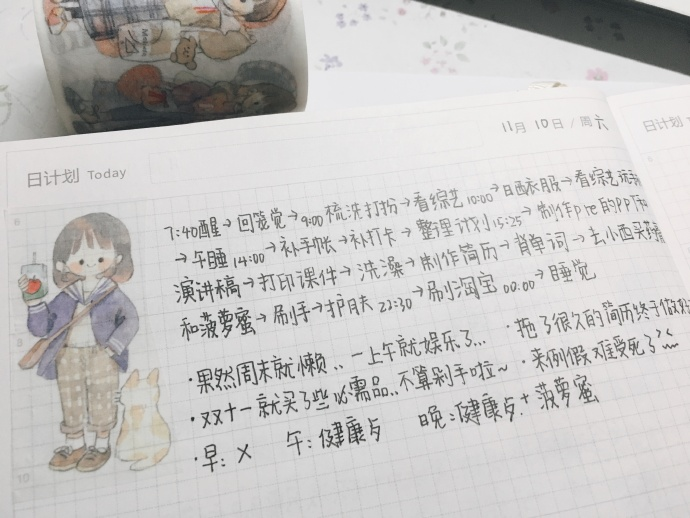 11月 10日 / 周六
日计划 Today
日计划
7:40醒→回笼觉→9:00梳洗打扮→看综艺10:00→日西衣服→看综艺玩
→午睡14:00→补手帐→补打卡→整理计划15:25→制作pre的PPT和
演讲稿→打印课件→洗澡→制作简历→背单词→去小西买
和菠萝蜜→刷手→护肤22:30→刷淘宝00:00→睡觉
·果然周末就懒..一上午就娱乐了... ·拖了很久的简历终于做好
·双十一就买了些必需品..不算剁手啦~ ·来例假难受死了
·早:× 午:健康点 晚:健康点+菠萝蜜
6
8
10